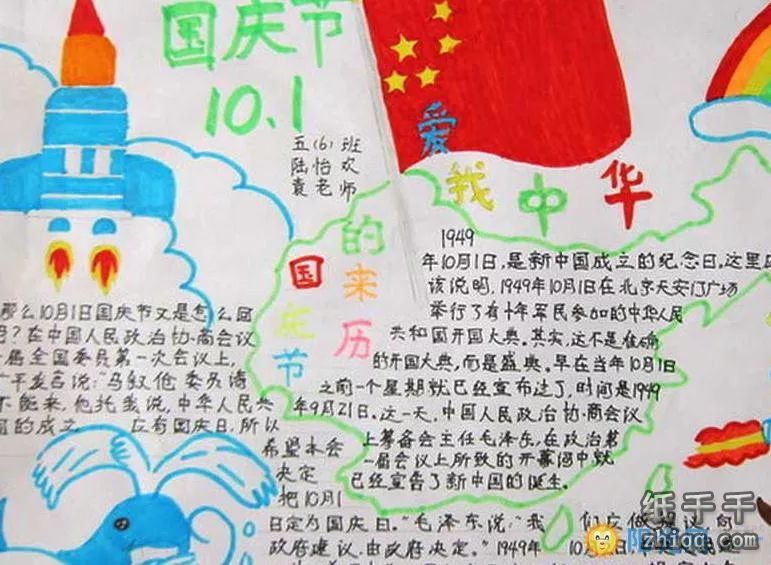 国庆节
10.1
五(6)班
陆怡欢
袁老师
爱我中华
国庆节
的来历
1949
年10月1日,是新中国成立的纪念日。这里应
该说明,1949年10月1日在北京天安门广场
举行了有十年军民参加的中华人民
共和国开国大典。其实,这不是准确
的开国大典,而是盛典。早在当年10月1日
之前一个星期就已经宣布过了,时间是1949
年9月21日。这一天,中国人民政治协商会议
上筹备会主任毛泽东,在政治第
一届会议上所致的开幕词中就
已经宣告了新中国的诞生。
那么10月1日国庆节又是怎么回
?在中国人民政治协商会议
届全国委员第一次会议上,
广平发言说:"马叙伦委员请
不能来,他托我说,中华人民共
国的成立 应有国庆日,所以
希望本会
决定
把10月1
日定为国庆日。"毛泽东说:"我们应做决议,向
政府建议,由政府决定。"1949年10月
纸千千
zhiqq.com